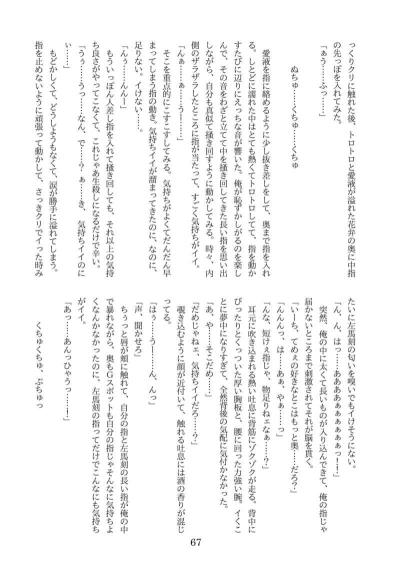 っくりクリに触れた後、トロトロと愛液が溢れた花弁の奥に中指
の先っぽを入れてみた。
「ぁう……ふっ……」
ぬちゅ……くちゅ……くちゅ
愛液を指に絡めるように少し抜き差しをして、奥まで指を入れ
る。しとどに濡れた中はとても熱くてトロトロしてて、指を動か
すたびに辺りにえっちな音が響いた。俺が恥ずかしがるのを楽し
んで、その音をわざと立てて中を掻き回してきた長い指を思い出
しながら、自分も真似て掻き回すように動かしてみる。時々、内
側のザラザラしたところに指が当たって、すごく気持ちがイイ。
「んぁ……ぁ……うー……」
そこを重点的にこすこすしてみる。気持ちがよくてだんだん早
まってしまう指の動き。気持ちイイが溜まってきたのに、なのに、
足りない。イけない……。
「んぅ……んんー」
もういっぽん人差し指を入れて掻き回しても、それ以上の気持
ち良さがやってこなくて、これじゃあ生殺しになるだけで辛い。
「うぅ……うっ……なん、で……？ぁ……き、気持ちイイのに
い……」
もどかしくて、どうしようもなくて、涙が勝手に溢れてしまう。
指を止めないように頑張って動かして、さっきクリでイった時み
たいに左馬刻の匂いを嗅いでもイけそうにない。
「ん、ん、はっ……ああああぁぁぁぁぁっ！！」
突然、俺の中に太くて長いものが入り込んできて、俺の指じゃ
届かないところまで刺激されてそれが脳を貫く。
「いーち、てめぇの好きなとこはもっと奥……だろ？」
「んんんっ、は……あぁ、やぁ……っ」
「んな、短けぇ指じゃ、物足りねェなぁ……？」
耳元に吹き込まれる熱い吐息に背筋にゾクゾクが走る。背中に
ぴったりとくっついた厚い胸板と、腰に回った力強い腕。イくこ
とに夢中になりすぎて、全然背後の気配に気付かなかった。
「あ、や……そこだめ……」
「だめじゃねェ、気持ちイイだろ……？」
覗き込むように顔が近付いて、触れる吐息には酒の香りが混じ
ってる。
「はぅ……うー……ん、んっ」
「声、聞かせろ」
ちゅっと唇が頬に触れて、自分の指と左馬刻の長い指が俺の中
で暴れながら、奥もＧスポットも自分の指じゃそんなに気持ちよ
くなんかなかったのに、左馬刻の指ってだけでこんなにも気持ち
がイイ。
「あっ……あんっひゃうっ……！」
くちゅくちゅ、ぷちゅっ
67